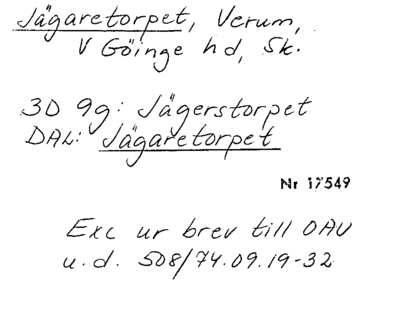 Jägaretorpet, Verum,
V Göinge hd, Sk.
3D 9g: Jägerstorpet
DAL: Jägaretorpet
Nr 17549
Exc ur brev till OAU
u.d. 508/74.09.19-32